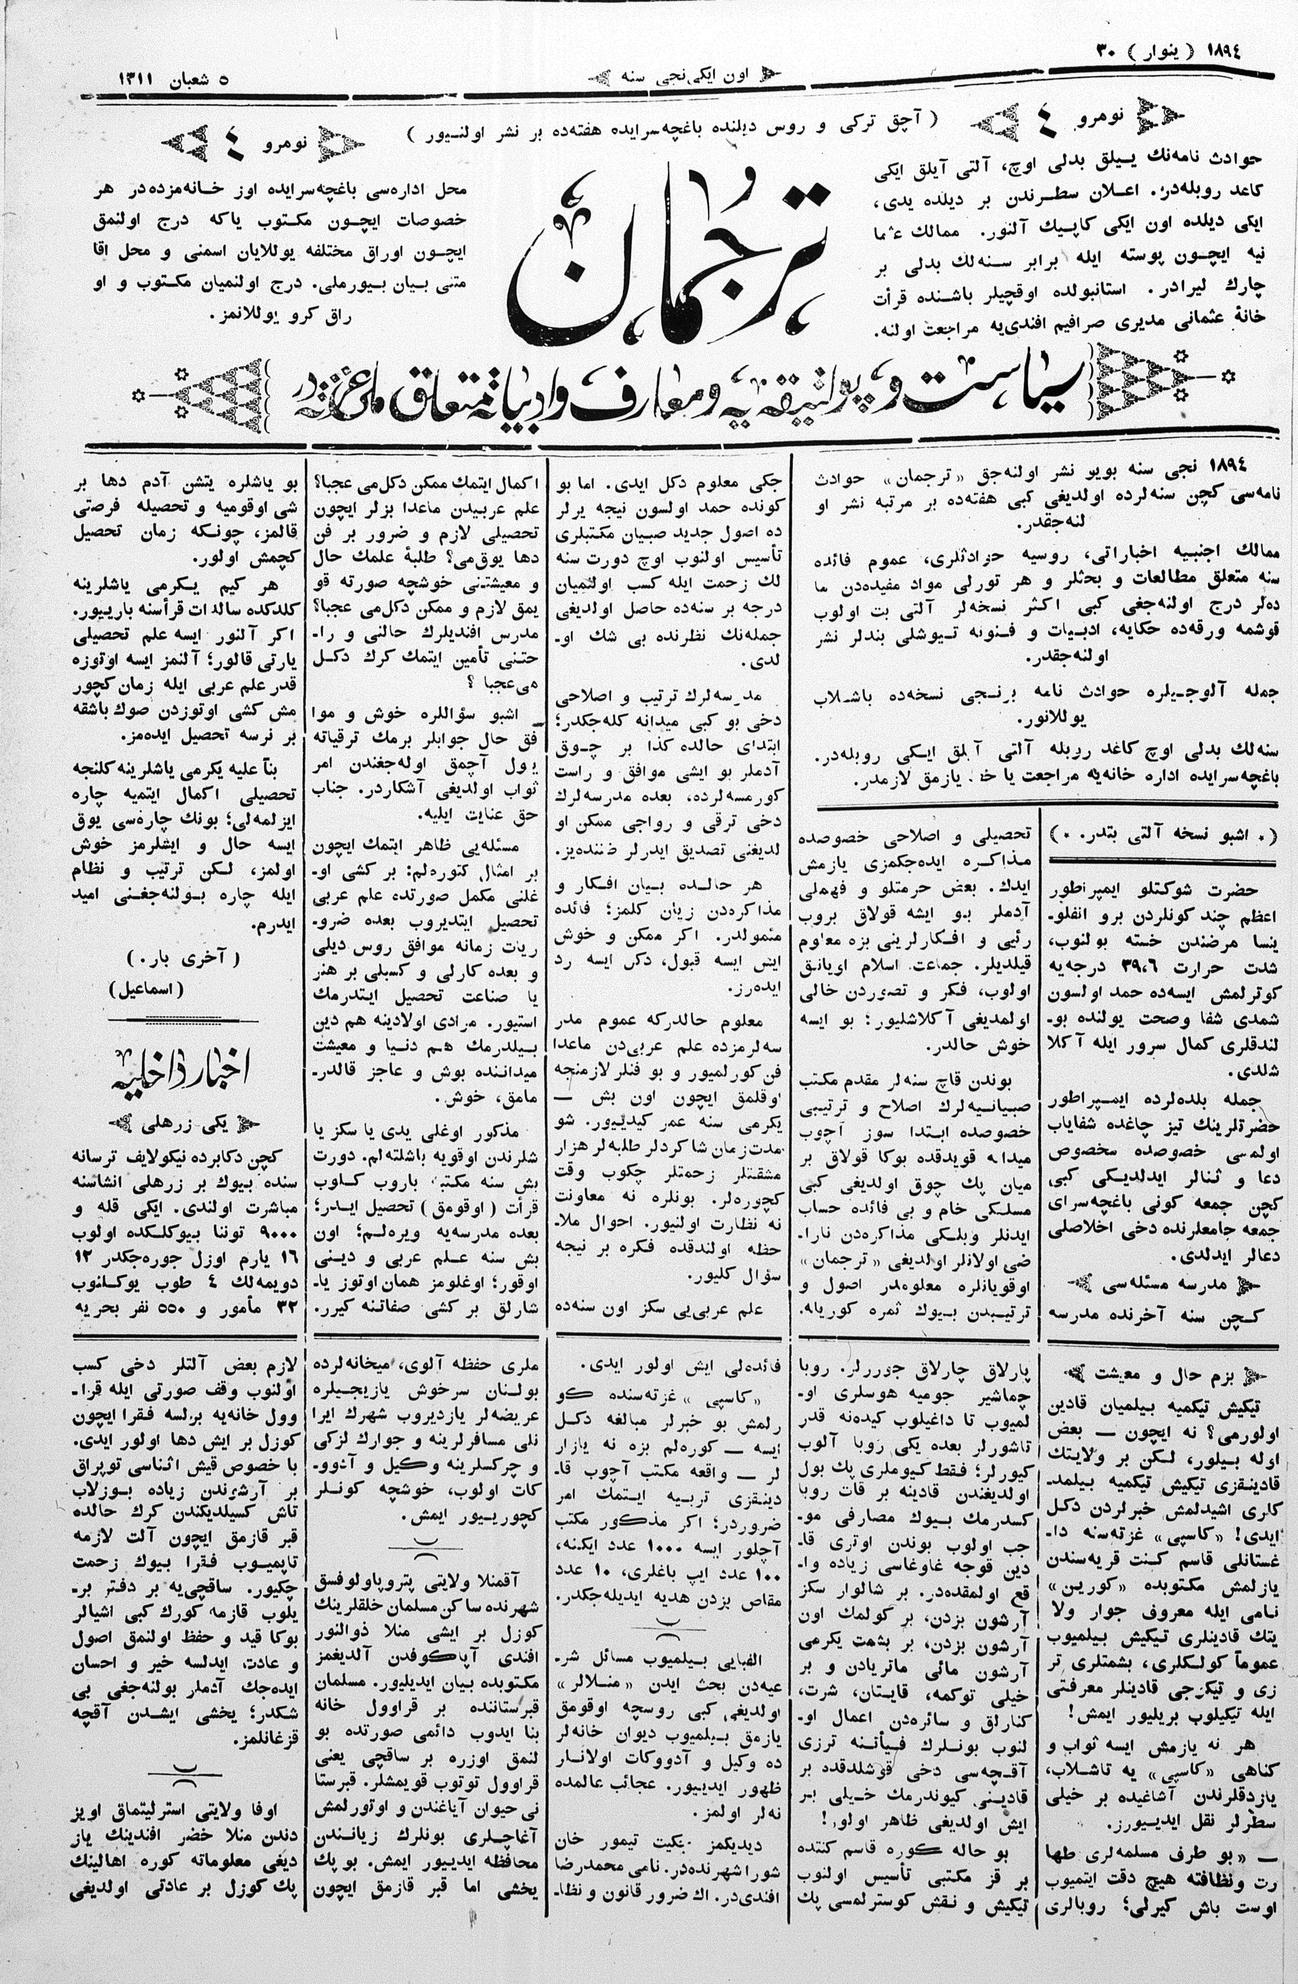 ١٨٩٤ ( ینوار ) ٣٠
اون ایکی نجی سنه
٥ شعبان ١٣١١
نومرو ٤
( آچق ترکی و روس دیلنده باغچه‌سرایده هفته‌ده بر نشر اولنیور )
نومرو ٤
حوادث نامه‌نك ییلق بدلی اوچ، آلتی آیلق ایکی
کاغد روبله‌در. اعلان سطرندن بر دیلده یدی،
ایکی دیلده اون ایکی کاپیك آلنور. ممالك عثما
نیه ایچون پوسته ایله برابر سنه‌لك بدلی بر
چارك لیرادر. استانبولده اوقچیلر باشنده قرأت
خانهٔ عثمانی مدیری صرافیم افندی‌یه مراجعت اولنه.
ترجمان
محل اداره‌سی باغچه‌سرایده اوز خانه‌مزده‌در هر
خصوصات ایچون مکتوب یاکه درج اولنمق
ایچون اوراق مختلفه یوللایان اسمنی و محل اقا
متنی بیان بیورملی. درج اولنمیان مکتوب و او
راق کرو یوللانمز.
سیاست و پولیتیقه‌یه و معارف و ادبیاته متعلق ملی غزته‌در
١٨٩٤ نجی سنه بویو نشر اولنه‌جق «ترجمان» حوادث
نامه‌سی کچن سنه‌لرده اولدیغی کبی هفته‌ده بر مرتبه نشر او
لنه‌جقدر.
ممالك اجنبیه اخباراتی، روسیه حوادثلری، عموم فائده
سنه متعلق مطالعات و بحثلر و هر تورلی مواد مفیده‌دن ما
ده‌لر درج اولنه‌جغی کبی اکثر نسخه‌لر آلتی بت اولوب
قوشمه ورقه‌ده حکایه، ادبیات و فنونه تیوشلی بندلر نشر
اولنه‌جقدر.
جمله آلوجیلره حوادث نامه برنجی نسخه‌ده باشلاب
یوللانور.
سنه‌لك بدلی اوچ کاغد روبله آلتی آیلق ایکی روبله‌در.
باغچه‌سرایده اداره خانه‌یه مراجعت یا خط یازمق لازمدر.
(٠ اشبو نسخه آلتی بتدر. ٠)
حضرت شوکتلو ایمپراطور
اعظم چند کونلردن برو انفلو-
ینسا مرضندن خسته بولنوب،
شدت حرارت ٣٩،٦ درجه‌یه
کوترلمش ایسه‌ده حمد اولسون
شمدی شفا وصحت یولنده بو-
لندقلری کمال سرور ایله آکلا
شلدی.
جمله بلده‌لرده ایمپراطور
حضرتلرینك تیز چاغده شفایاب
اولمسی خصوصده مخصوص
دعا و ثنالر ایدلدیکی کبی
کچن جمعه کونی باغچه‌سرای
جمعه جامعلرنده دخی اخلاصلی
دعالر ایدلدی.
مدرسه مسئله‌سی
کچن سنه آخرنده مدرسه
تحصیلی و اصلاحی خصوصده
مذاکره ایده‌جکمزی یازمش
ایدك. بعض حرمتلو و فهملی
آدملر بو ایشه قولاق بروب
رئیی و افکارلرینی بزه معلوم
قیلدیلر. جماعت اسلام اویانق
اولوب، فکر و تصوردن خالی
اولمدیغی آکلاشلیور؛ بو ایسه
خوش حالدر.
بوندن قاچ سنه‌لر مقدم مکتب
صبیانیه‌لرك اصلاح و ترتیبی
خصوصده ابتدا سوز آچوب
میدانه قویدقده بوکا قولاق بر
میان پك چوق اولدیغی کبی
مسلکی خام و بی فائده حساب
ایدنلر وبلکی مذاکره‌دن نارا-
ضی اولانلر اولدیغی «ترجمان»
اوقویانلره معلومدر اصول و
ترتیبدن بیوك ثمره کوریله.
جکی معلوم دکل ایدی. اما بو
کونده حمد اولسون نیجه یرلر
ده اصول جدید صبیان مکتبلری
تأسیس اولنوب اوچ دورت سنه
لك زحمت ایله کسب اولنمیان
درجه بر سنه‌ده حاصل اولدیغی
جمله‌نك نظرنده بی شك او-
لدی.
مدرسه‌لرك ترتیب و اصلاحی
دخی بو کبی میدانه کله‌جکدر؛
ابتدای حالده کذا بر چوق
آدملر بو ایشی موافق و راست
کورمسه‌لرده، بعده مدرسه‌لرك
دخی ترقی و رواجی ممکن او
لدیغنی تصدیق ایدرلر ظننده‌یز.
هر حالده بیان افکار و
مذاکره‌دن زیان کلمز؛ فائده
مئمولدر. اکر ممکن و خوش
ایش ایسه قبول، دکل ایسه رد
ایده‌رز.
معلوم حالدرکه عموم مدر
سه‌لرمزده علم عربی‌دن ماعدا
فن کورلمیور و بو فنلر لازمنجه
اوقلمق ایچون اون بش —
یکرمی سنه عمر کیدیور. شو
مدت زمان شاکردلر طلبه‌لر هزار
مشقتلر زحمتلر چکوب وقت
کچوره‌لر. بونلره نه معاونت
نه نظارت اولنیور. احوال ملا-
حظه اولندقده فکره بر نیجه
سؤال کلیور.
علم عربی‌یی سکز اون سنه‌ده
اکمال ایتمك ممکن دکل‌می عجبا؟
علم عربیدن ماعدا بزلر ایچون
تحصیلی لازم و ضرور بر فن
دها یوق‌می؟ طلبهٔ علمك حال
و معیشتنی خوشچه صورته قو
یمق لازم و ممکن دکل‌می عجبا؟
مدرس افندیلرك حالنی و را-
حتنی تأمین ایتمك کرك دکل
می عجبا ؟
اشبو سؤاللره خوش و موا
فق حال جوابلر برمك ترقیاته
یول آچمق اوله‌جغندن امر
ثواب اولدیغی آشکاردر. جناب
حق عنایت ایلیه.
مسئله‌یی ظاهر ایتمك ایچون
بر امثال کتوره‌لم: بر کشی او-
غلنی مکمل صورتده علم عربی
تحصیل ایتدیروب بعده ضرو-
ریات زمانه موافق روس دیلی
و بعده کارلی و کسبلی بر هنر
یا صناعت تحصیل ایتدرمك
استیور. مرادی اولادینه هم دین
بیلدرمك هم دنیا و معیشت
میداننده بوش و عاجز قالدر-
مامق، خوش.
مذکور اوغلی یدی یا سکز یا
شلرندن اوقویه باشلته‌لم. دورت
بش سنه مکتبه باروب کلوب
قرأت (اوقومق) تحصیل ایدر؛
بعده مدرسه‌یه ویره‌لم؛ اون
بش سنه علم عربی و دینی
اوقور؛ اوغلومز همان اوتوز یا-
شارلق بر کشی صفاتنه کیرر.
بو یاشلره یتشن آدم دها بر
شی اوقومیه و تحصیله فرصتی
قالمز، چونکه زمان تحصیل
کچمش اولور.
هر کیم یکرمی یاشلرینه
کلدکده سالدات قرأسنه بارییور.
اکر آلنور ایسه علم تحصیلی
یارتی قالور؛ آلنمز ایسه اوتوزه
قدر علم عربی ایله زمان کچور
مش کشی اوتوزدن صوك باشقه
بر نرسه تحصیل ایده‌مز.
بنأ علیه یکرمی یاشلرینه کلنجه
تحصیلی اکمال ایتمیه چاره
ایزلمه‌لی؛ بونك چاره‌سی یوق
ایسه حال و ایشلرمز خوش
اولمز، لکن ترتیب و نظام
ایله چاره بولنه‌جغنی امید
ایدرم.
( آخری بار. )
(اسماعیل)
اخبار داخلیه
یکی زرهلی
کچن دکابرده نیکولایف ترسانه
سنده بیوك بر زرهلی انشاسنه
مباشرت اولندی. ایکی قله و
٩٠٠٠ توننا بیوکلکده اولوب
١٦ یارم اوزل جوره‌جکدر ١٢
دویمه‌لك ٤ طوب یوکلنوب
٣٢ مأمور و ٥٥٠ نفر بحریه
بزم حال و معیشت
تیکیش تیکمیه بیلمیان قادین
اولورمی؟ نه ایچون — بعض
اوله بیلور، لکن بر ولایتك
قادینقزی تیکیش تیکمیه بیلمد-
کلری اشیدلمش خبرلردن دکل
ایدی! «کاسپی» غزته‌سنه دا-
غستانلی قاسم کنت قریه‌سندن
یازلمش مکتوبده «کورین»
نامی ایله معروف جوار ولا
یتك قادینلری تیکیش بیلمیوب
عموماً کولکلری، بشمتلری تر
زی و تیکرجی قادینلر معرفتی
ایله تیکیلوب بریلیور ایمش!
هر نه یازمش ایسه ثواب و
کناهی «کاسپی» یه تاشلاب،
یازدقلرندن آشاغیده بر خیلی
سطرلر نقل ایدییورز.
— «بو طرف مسلمه‌لری طها
رت ونظافته هیچ دقت ایتمیوب
اوست باش کیرلی؛ روبالری
پارلاق چارلاق جوررلر. روبا
چماشیر جومیه هوسلری او-
لمیوب تا داغیلوب کیدنه قدر
تاشورلر بعده یکی روبا آلوب
کیورلر؛ فقط کیوملری پك بول
اولدیغندن قادینه بر قات روبا
کسدرمك بیوك مصارفی مو-
جب اولوب بوندن اوتری قا-
دین قوجه غاوغاسی زیاده وا-
قع اولمقده‌در. بر شالوار سکز
آرشون بزدن، بر کولمك اون
آرشون بزدن، بر بشمت یکرمی
آرشون مائی ماتریادن و بر
خیلی توکمه، قایتان، شرت،
کنارلق و سائره‌دن اعمال او-
لنوب بونلرك فیأتنه ترزی
آقچه‌سی دخی قوشلدقده بر
قادینی کیوندرمك خیلی بر
ایش اولدیغی ظاهر اولور!
بو حاله کوره قاسم کنتده
بر قز مکتبی تأسیس اولنوب
تیکیش و نقش کوسترلمسی پك
فائده‌لی ایش اولور ایدی.
«کاسپی» غزته‌سنده کو
رلمش بو خبرلر مبالغه دکل
ایسه — کوره‌لم بزه نه یازار
لر — واقعه مکتب آچوب قا-
دینقزی تربیه ایتمك امر
ضروردر؛ اکر مذکور مکتب
آچلور ایسه ١٠٠٠ عدد ایکنه،
١٠٠ عدد ایپ باغلری، ١٠ عدد
مقاص بزدن هدیه ایدیله‌جکدر.
الفبایی بیلمیوب مسائل شر-
عیه‌دن بحث ایدن «منلالر»
اولدیغی کبی روسچه اوقومق
یازمق بیلمیوب دیوان خانه‌لر
ده وکیل و آدووکات اولانلر
ظهور ایدییور. عجائب عالمده
نه‌لر اولمز.
دیدیکمز یکیت تیمور خان
شورا شهرنده‌در. نامی محمدرضا
افندی‌در. اك ضرور قانون و نظا-
ملری حفظه آلوی، میخانه‌لرده
بولنان سرخوش یازیجیلره
عریضه‌لر یازدیروب شهرك ایرا
نلی مسافرلرینه و جوارك لزکی
و چرکسلرینه وکیل و آدوو-
کات اولوب، خوشچه کونلر
کچوریور ایمش.
آقمنلا ولایتی پتروپاولوفسق
شهرنده ساکن مسلمان خلقلرینك
کوزل بر ایشی منلا ذوالنور
افندی آپاکوفدن آلدیغمز
مکتوبده بیان ایدیلیور. مسلمان
قبرستاننده بر قراوول خانه
بنا ایدوب دائمی صورتده بو
لنمق اوزره بر ساقچی یعنی
قراوول توتوب قویمشلر. قبرستا
نی حیوان آیاغندن و اوتورلمش
آغاچلری بونلرك زیانندن
محافظه ایدییور ایمش. بو پك
یخشی اما قبر قازمق ایچون
لازم بعض آلتلر دخی کسب
اولنوب وقف صورتی ایله قرا-
وول خانه‌یه برلسه فقرا ایچون
کوزل بر ایش دها اولور ایدی.
با خصوص قیش اثناسی توپراق
بر آرشوندن زیاده بوزلاب
تاش کسیلدیکندن کرك حالده
قبر قازمق ایچون آلت لازمه
تاپمیوب فقرا بیوك زحمت
چکیور. ساقچی‌یه بر دفتر بر-
یلوب قازمه کورك کبی اشیالر
بوکا قید و حفظ اولنمق اصول
و عادت ایدلسه خیر و احسان
ایده‌جك آدملر بولنه‌جغی بی
شکدر؛ یخشی ایشدن آقچه
قزغانلمز.
اوفا ولایتی استرلیتماق اویز
دندن منلا خضر افندینك یاز
دیغی معلوماته کوره اهالینك
پك کوزل بر عادتی اولدیغی